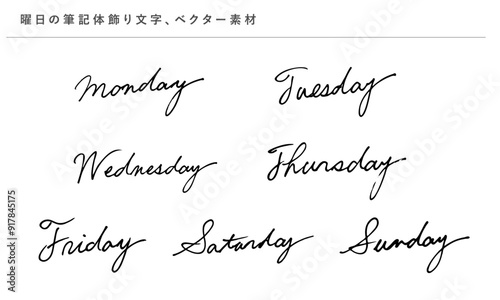 曜日の筆記体飾り文字、ベクター素材
Monday Tuesday
Wednesday Thursday
Friday Saturday Sunday
Adobe Stock | #917845175